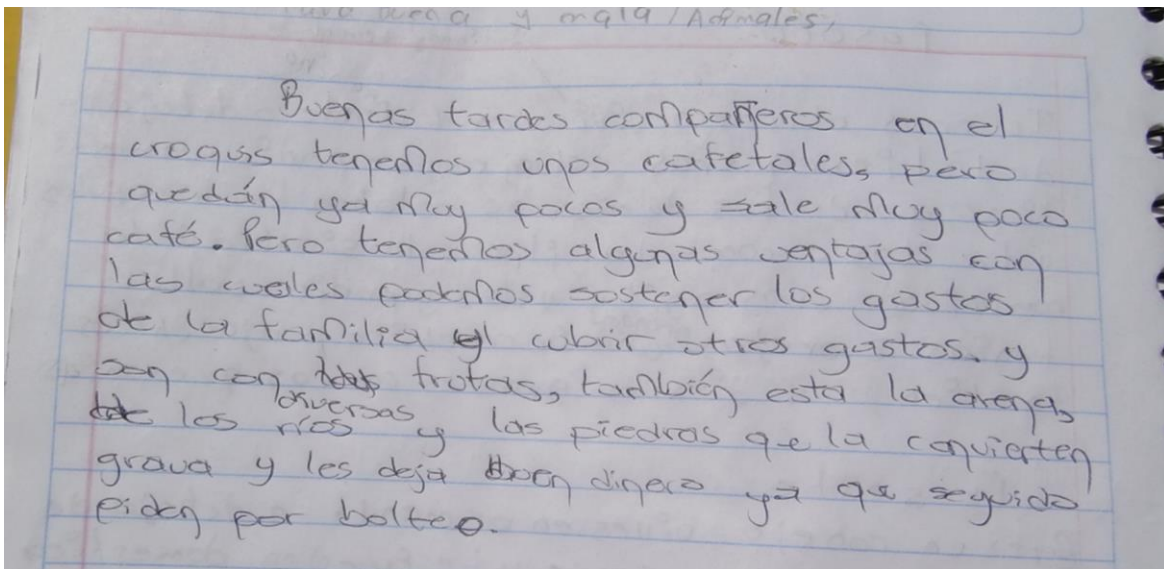 y mala / Animales,
Buenas tardes compañeros en el
croquis tenemos unos cafetales, pero
quedán ya muy pocos y sale muy poco
café. Pero tenemos algunas ventajas con
las cuales podemos sostener los gastos
de la familia y cubrir otros gastos. y
son con frutas, también esta la arena,
diversas
de los ríos y las piedras que la convierten
grava y les deja buen dinero ya que seguido
piden por bolteo.